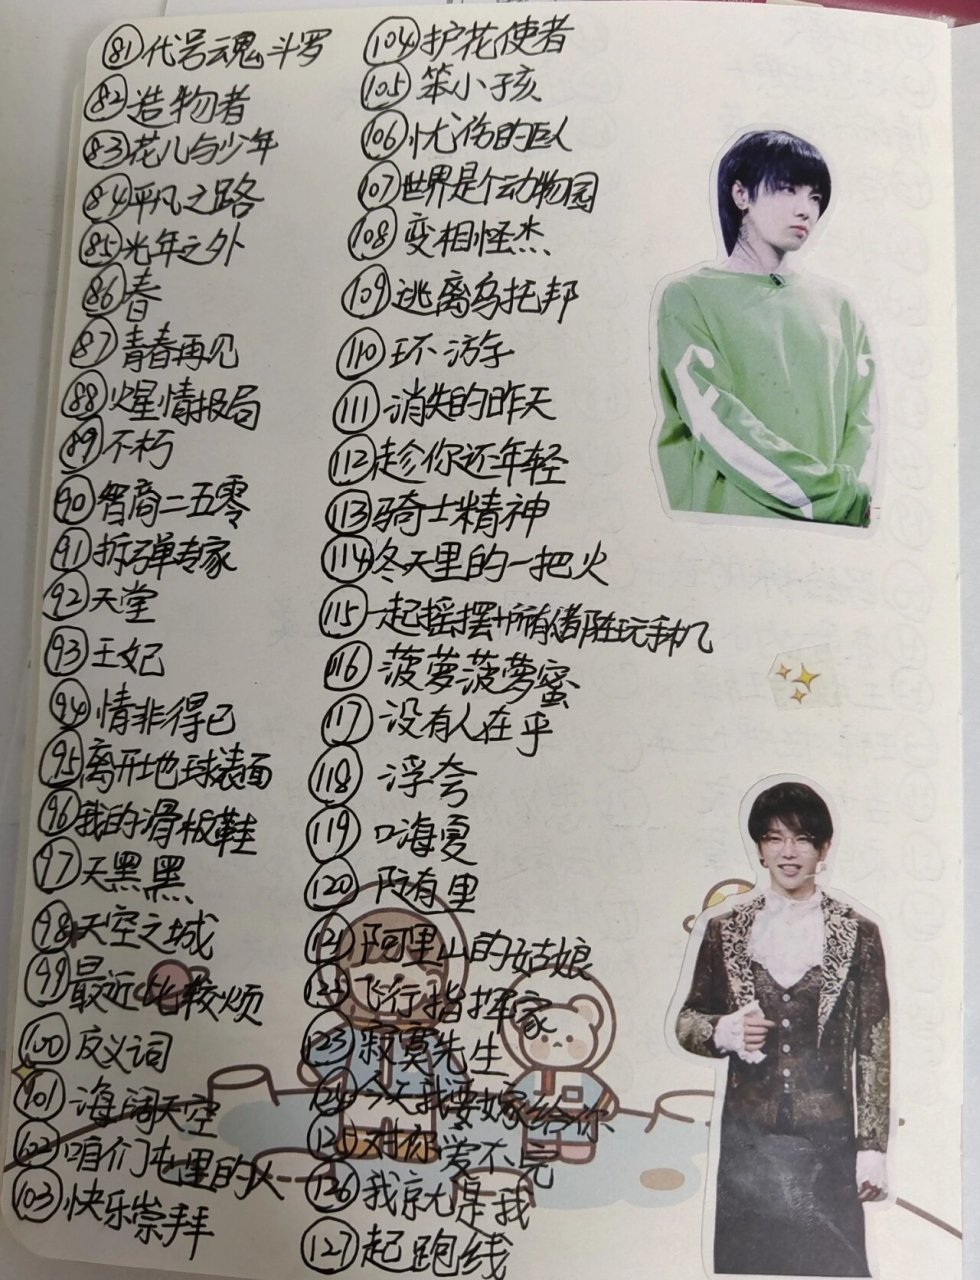 81 代号魂斗罗
82 造物者
83 花儿与少年
84 平凡之路
85 光年之外
86 春
87 青春再见
88 火星情报局
89 不朽
90 智商二五零
91 拆弹专家
92 天堂
93 王妃
94 情非得已
95 离开地球表面
96 我的滑板鞋
97 天黑黑
98 天空之城
99 最近比较烦
100 反义词
101 海阔天空
102 咱们屯里的人
103 快乐崇拜
104 护花使者
105 笨小孩
106 忧伤的巨人
107 世界是个动物园
108 变相怪杰
109 逃离乌托邦
110 环游
111 消失的昨天
112 趁你还年轻
113 骑士精神
114 冬天里的一把火
115 一起摇摆+所有人都在玩手机
116 菠萝菠萝蜜
117 没有人在乎
118 浮夸
119 嗨夏
120 所有
121 阿里山的姑娘
122 飞行指挥家
123 寂寞先生
124 今天我要嫁给你
125 对你爱不完
126 我就是我
127 起跑线